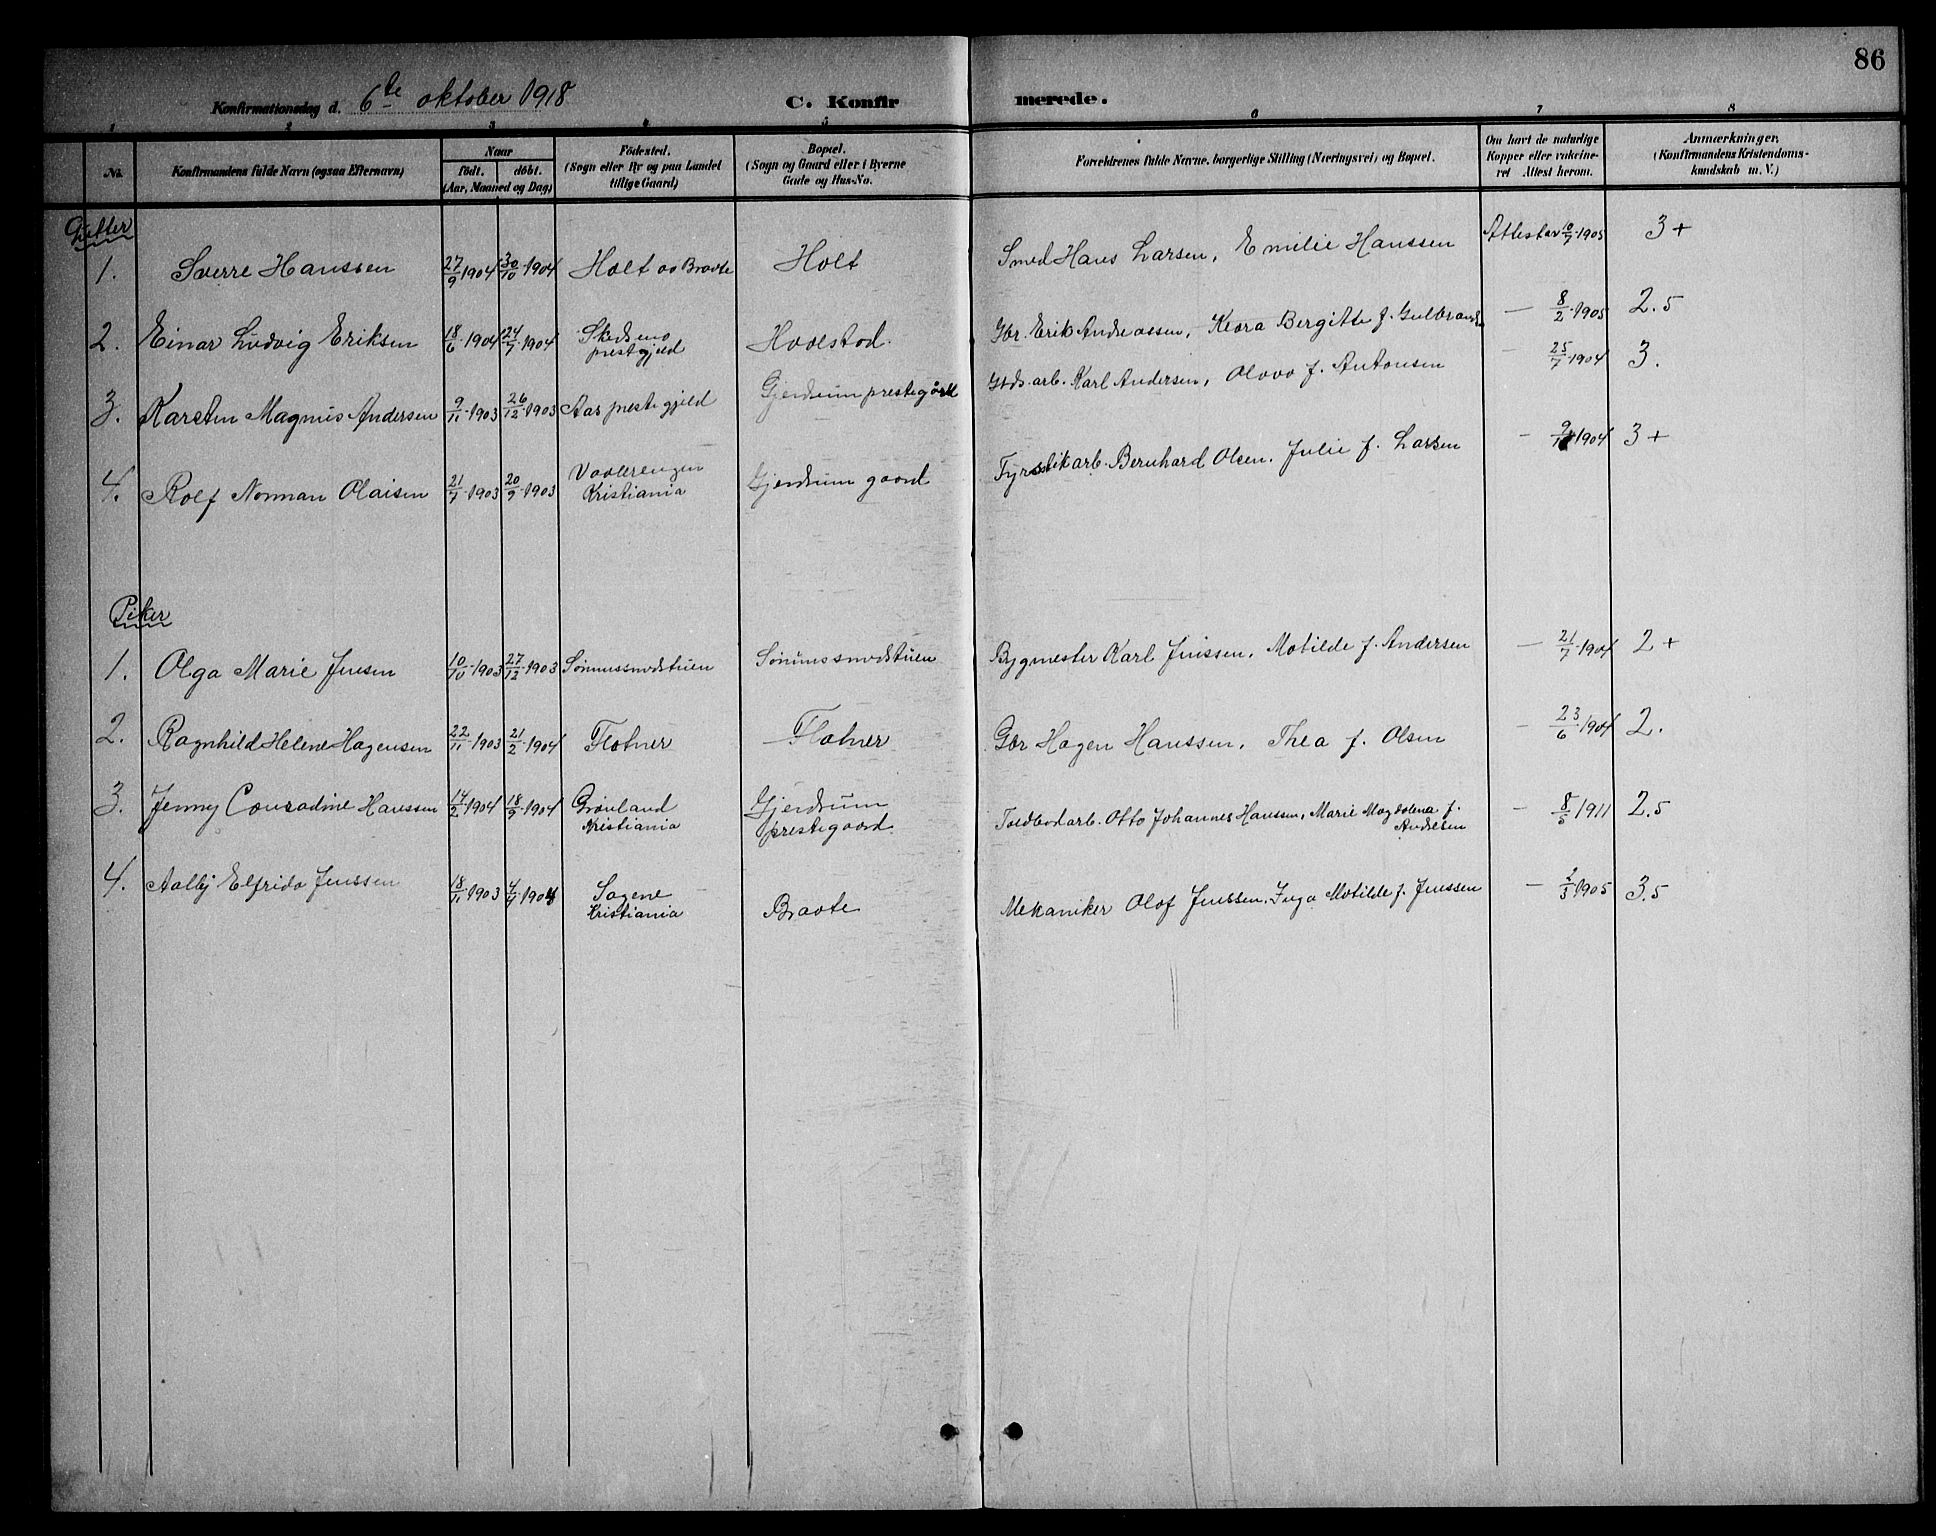 86
Konfirmationsdag d. 6te oktober 1918
C. Konfirmerede.
1 2 3 4 5 6 7 8
No.
Konfirmandens fulde Navn (ogsaa Efternavn)
Naar
födt. döbt.
(Aar, Maaned og Dag)
Födested.
(Sogn eller By og paa Landet
tillige Gaard)
Bopæl.
(Sogn og Gaard eller i Byerne
Gade og Hus-No.
Forældrenes fulde Navne, borgerlige Stilling (Næringsvei) og Bopæl.
Om havt de naturlige
Kopper eller vakcine-
ret Attest herom.
Anmærkninger,
(Konfirmandens Kristendoms-
kundskab m. V.)
Gutter
1. Sverre Hanssen 27/9 1904 30/10 1904 Holt Holt Smed Hans Larsen, Emilie Hanssen 10/7 1905 3+
2. Einar Ludvig Eriksen 18/6 1904 24/7 1904 Skedsmo
prestegjeld Gbr. Erik Andreassen, Klara Bergitte f. — 8/2 1905 2.5
3. Karsten Magnus Andersen 9/11 1903 26/12 1903 Aas prestegjeld Gjerdrum prestegård arb. Karl Andersen, f. Antonsen — 25/7 1904 3.
4. Rolf Norman Olaisen 21/7 1903 20/9 1903 Vaalerengen
Kristiania Gjerdrum gaard Bernhard Olsen, Julie f. Larsen — 1904 3+
Piker
1. Olga Marie Jensen 10/10 1903 27/12 1903 Bygmester Karl Jenssen, Matilde f. Andersen — 21/7 1904 2+
2. Ragnhild Helene Hagensen 22/11 1903 21/2 1904 Flatner Flatner Gbr Hagen Hanssen, Thea f. Olsen — 23/6 1904 2.
3. Jenny Conradine Hanssen 14/2 1904 18/9 1904 Grønland
Kristiania Gjerdrum
prestegaard Toldbodarb. Otto Johannes Hanssen, Marie Magdalena f.
Andresen — 8/5 1911 2.5
4. Aalbj Elfrida Jenssen 18/11 1903 4/4 1904 Sagene
Kristiania Braate Mekaniker Olaf Jenssen, Inga Matilde f. Jenssen — 2/3 1905 3.5